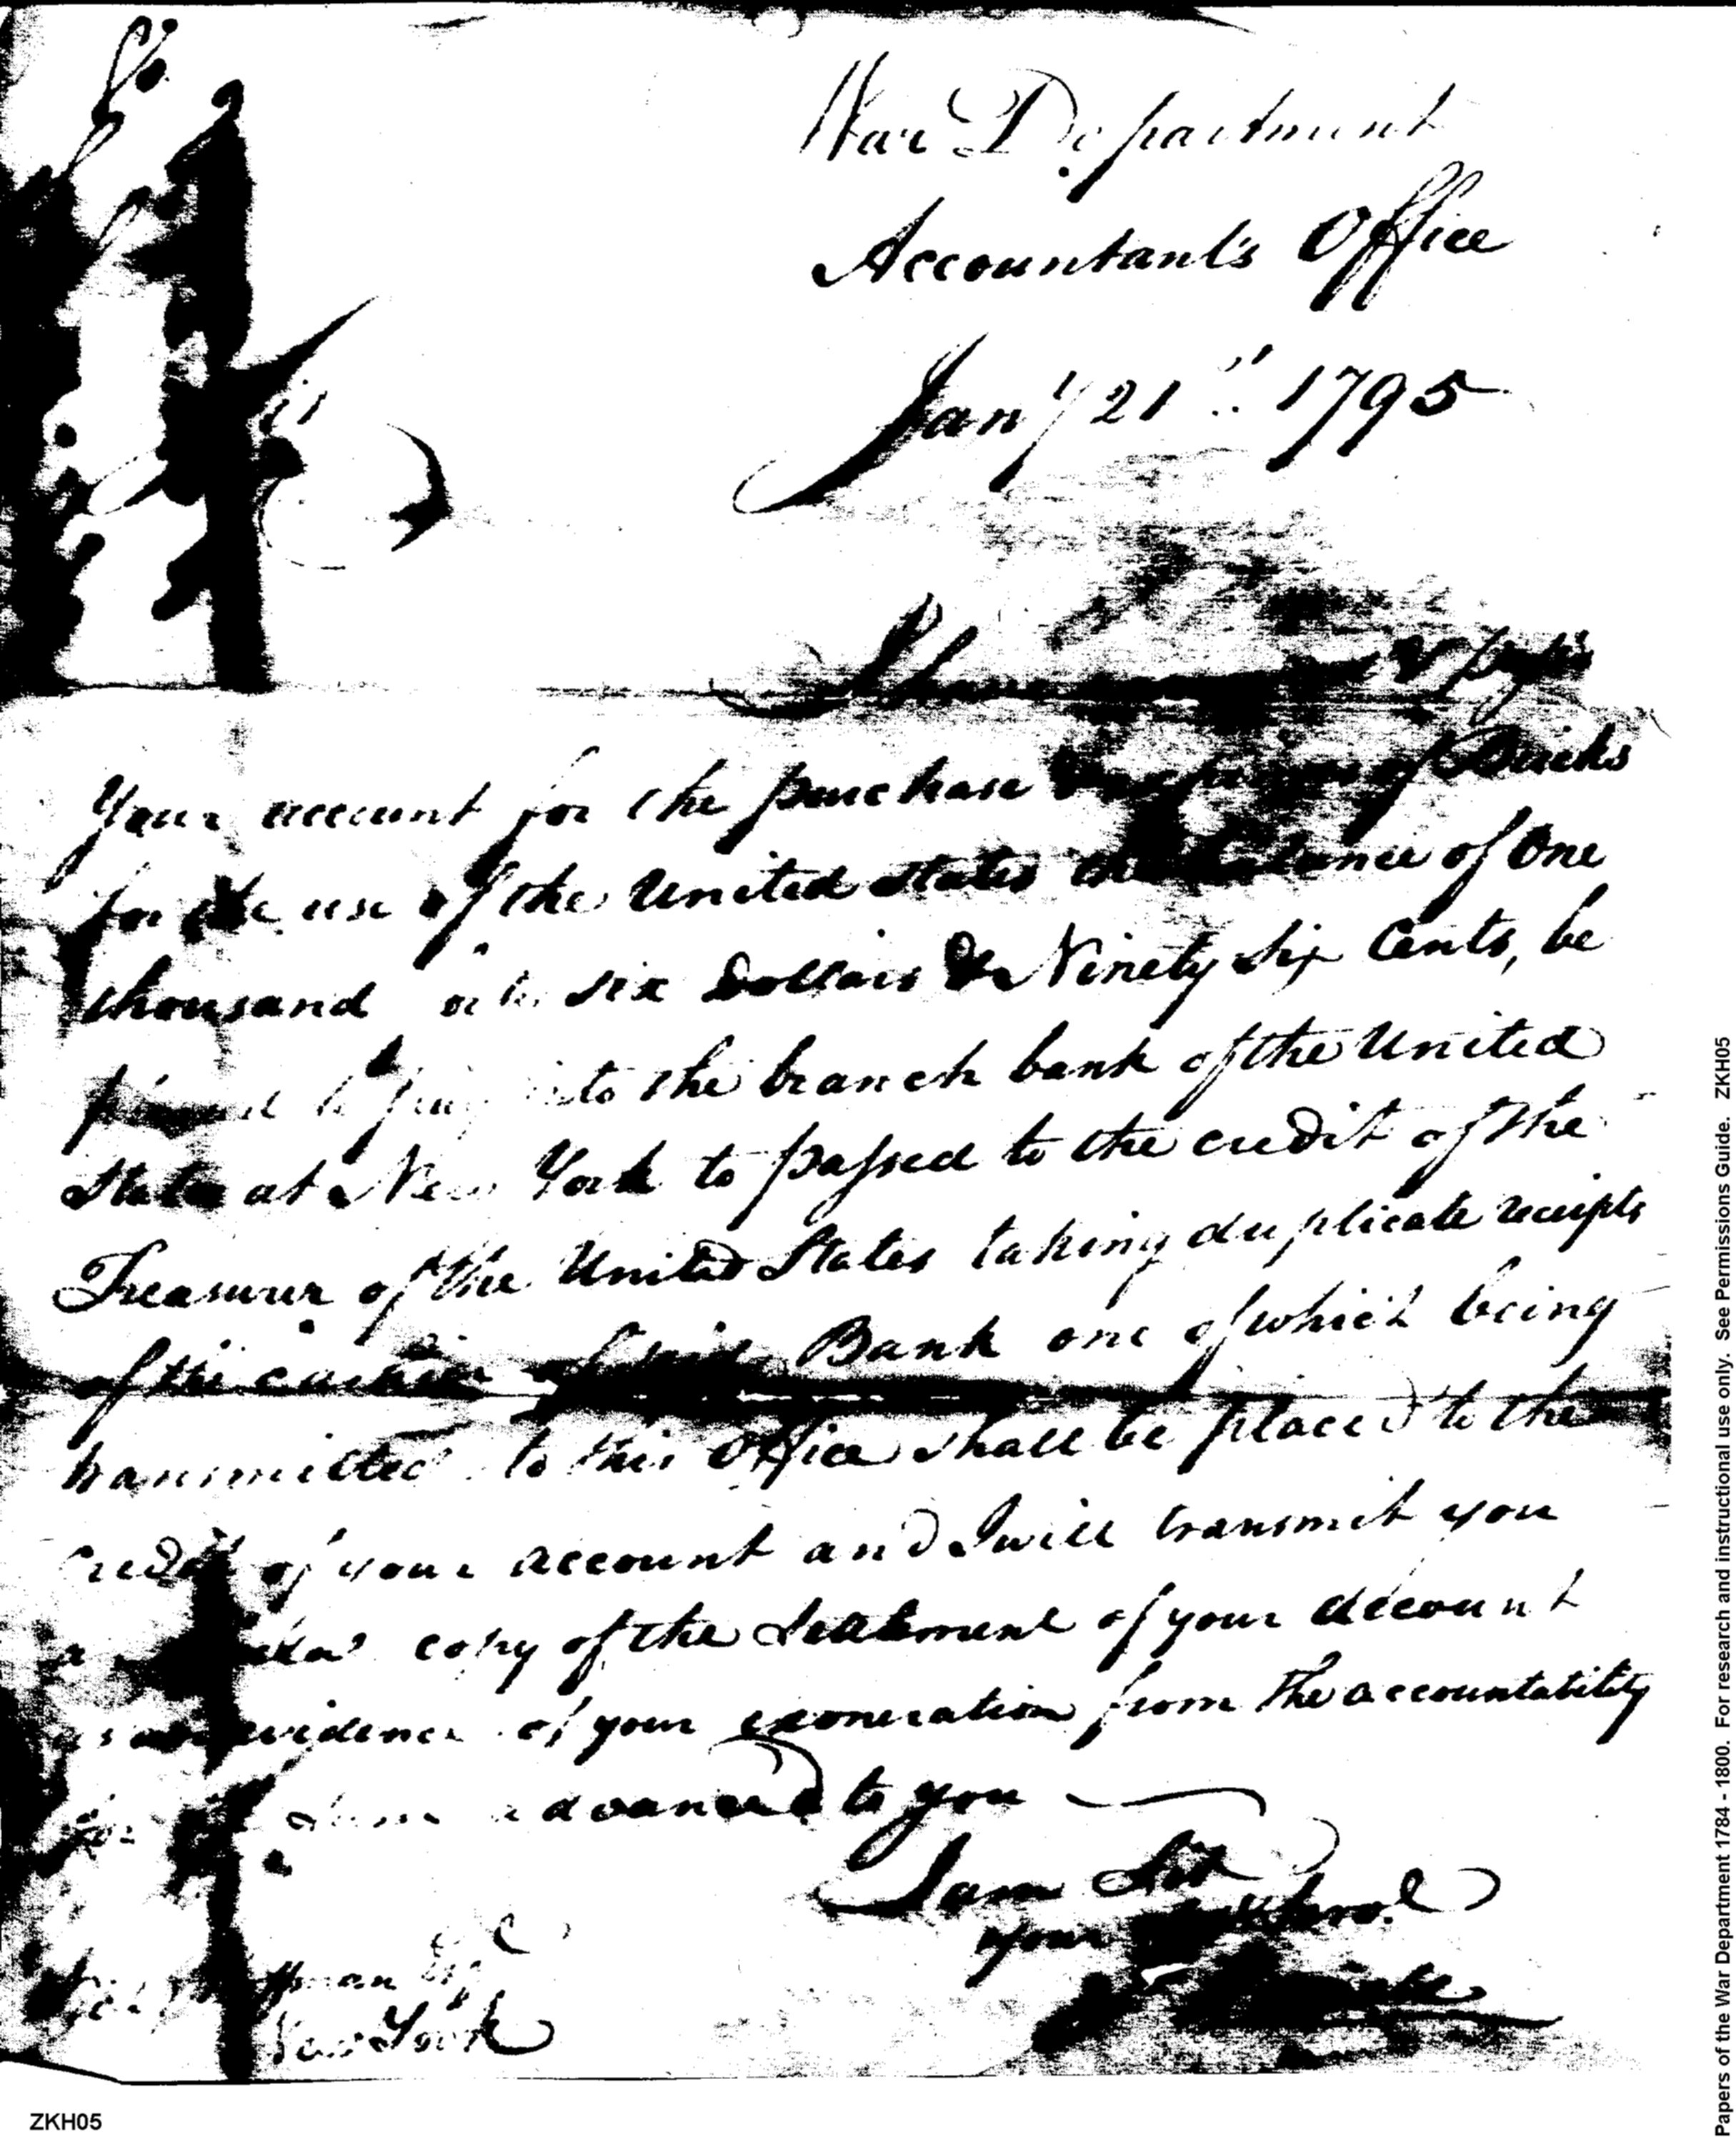 War Department
Accountant's Office
Jany 21st. 1795
Sir
I have
Your account for the purchase of Bricks
for the use of the United States the balance of One
thousand & six Dollars & Ninety six Cents, be
to the branch bank of the United
States at New York to passed to the credit of the
Treasurer of the United States taking duplicate receipts
of the cashier of said Bank one of which being
transmitted to this Office shall be placed to the
credit of your account and I will transmit you
a copy of the Settlement of your account
as an evidence of your exoneration from the accountability
for sum advanced to you
I am Sir
your
New York
ZKH05
Papers of the War Department 1784 - 1800. For research and instructional use only. See Permissions Guide. ZKH05